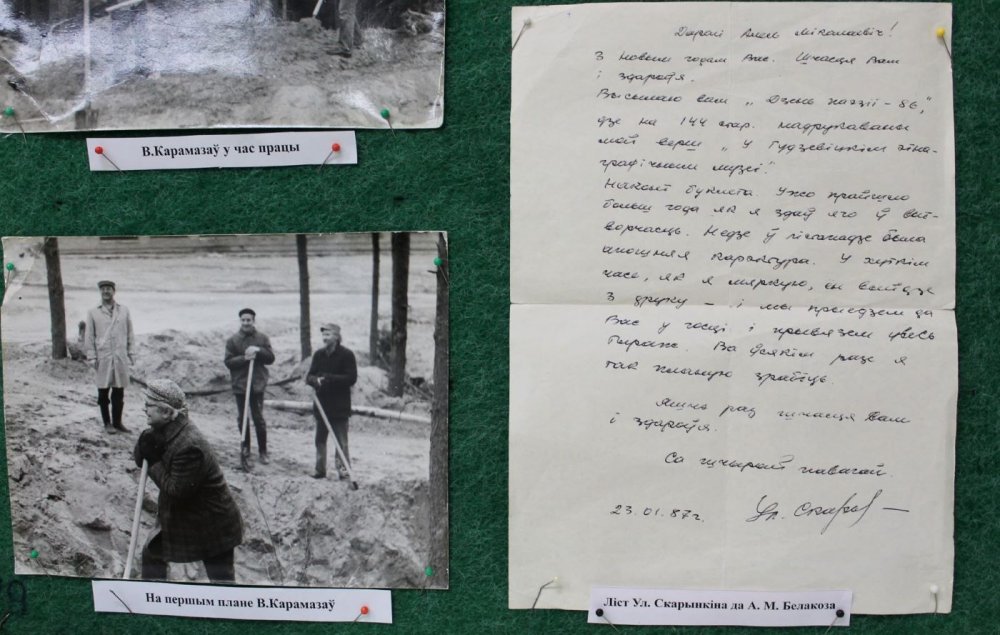 В.Карамазаў у час працы
На першым плане В.Карамазаў
Дарагі Алесь Мікалаевіч!
З Новым годам Вас. Шчасця Вам
і здароўя.
Высылаю вам „Дзень паэзіі – 86,"
дзе на 144 стар. надрукаваны
мой верш „У Гудзевіцкім этна-
графічным музеі."
Наконт буклета. Ужо прайшло
больш года як я здаў яго ў выт-
ворчасць. Недзе ў лістападзе была
апошняя карэктура. У хуткім
часе, як я мяркую, ён выйдзе
з друку – і мы прыедзем да
Вас у госці і прывязем увесь
тыраж. Ва ўсякім разе я
так планую зрабіць.
Яшчэ раз шчасця Вам
і здароўя.
Са шчырай павагай.
23.01.87г.
Ліст Ул. Скарынкіна да А. М. Белакоза